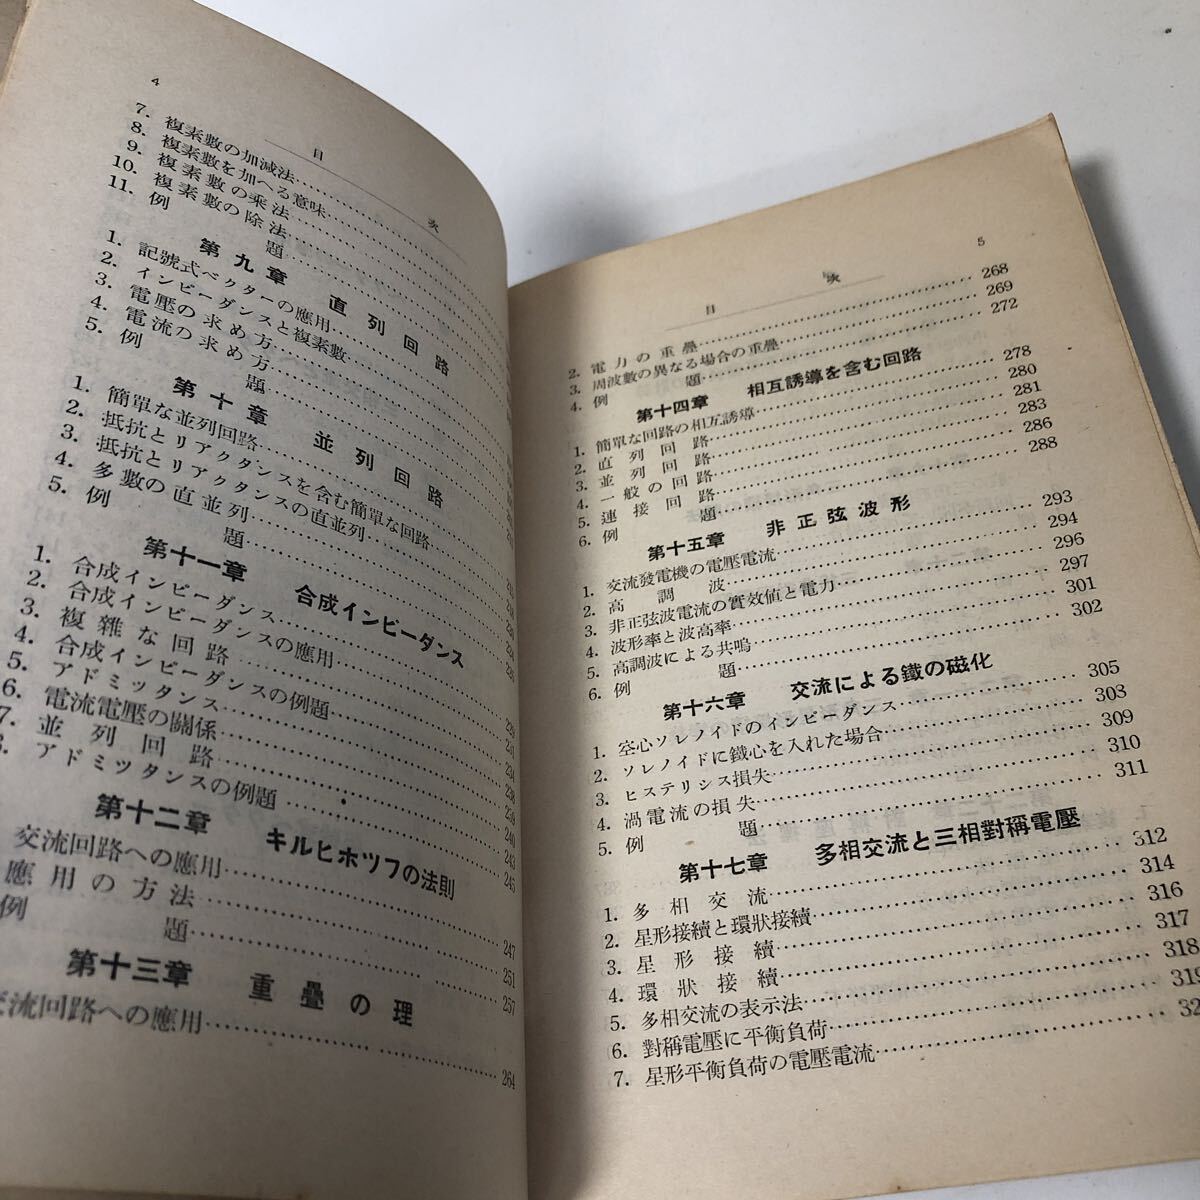 4
目 次
7. 複素數の加減法
8. 複素數を加へる意味
9. 複素數の乘法
10. 複素數の除法
11. 例題
第九章 直列回路
1. 記號式ベクターの應用
2. インピーダンスと複素數
3. 電壓の求め方
4. 電流の求め方
5. 例題
第十章 並列回路
1. 簡單な並列回路
2. 抵抗とリアクタンスを含む簡單な回路
3. 抵抗とリアクタンスの直並列
4. 多數の直並列
5. 例題
第十一章 合成インピーダンス
1. 合成インピーダンス
2. 合成インピーダンスの應用
3. 複雜な回路
4. 合成インピーダンスの例題
5. アドミツタンス
6. 電流電壓の關係
7. 並列回路
アドミツタンスの例題
第十二章 キルヒホツフの法則
交流回路への應用 247
應用の方法 251
例題 257
第十三章 重疊の理
交流回路への應用 264
5
目 次
2. 電力の重疊 268
3. 周波數の異なる場合の重疊 269
4. 例題 272
第十四章 相互誘導を含む回路
1. 簡單な回路の相互誘導 278
2. 直列回路 280
3. 並列回路 281
4. 一般の回路 283
5. 連接回路 286
6. 例題 288
第十五章 非正弦波形
1. 交流發電機の電壓電流 293
2. 高調波 294
3. 非正弦波電流の實效値と電力 296
4. 波形率と波高率 297
5. 高調波による共鳴 301
6. 例題 302
第十六章 交流による鐵の磁化
1. 空心ソレノイドのインピーダンス 305
2. ソレノイドに鐵心を入れた場合 308
3. ヒステリシス損失 309
4. 渦電流の損失 310
5. 例題 311
第十七章 多相交流と三相對稱電壓
1. 多相交流 312
2. 星形接續と環狀接續 314
3. 星形接續 316
4. 環狀接續 317
5. 多相交流の表示法 318
6. 對稱電壓に平衡負荷 319
7. 星形平衡負荷の電壓電流 32